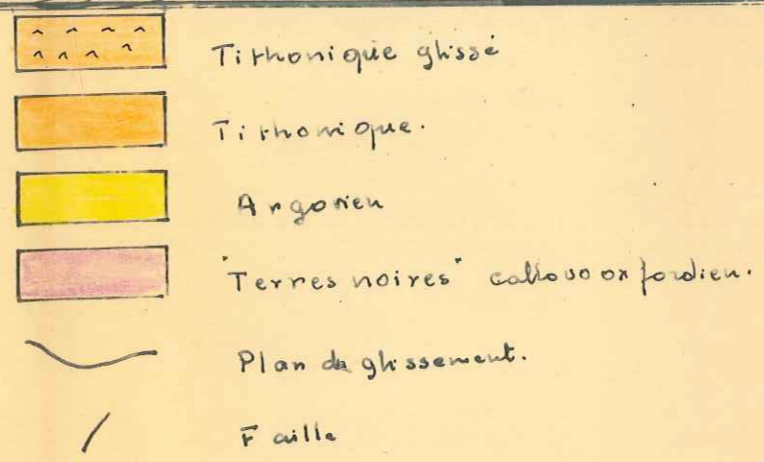 Tithonique glissé
Tithonique.
Argovien
"Terres noires" callovo oxfordien.
Plan de glissement.
Faille